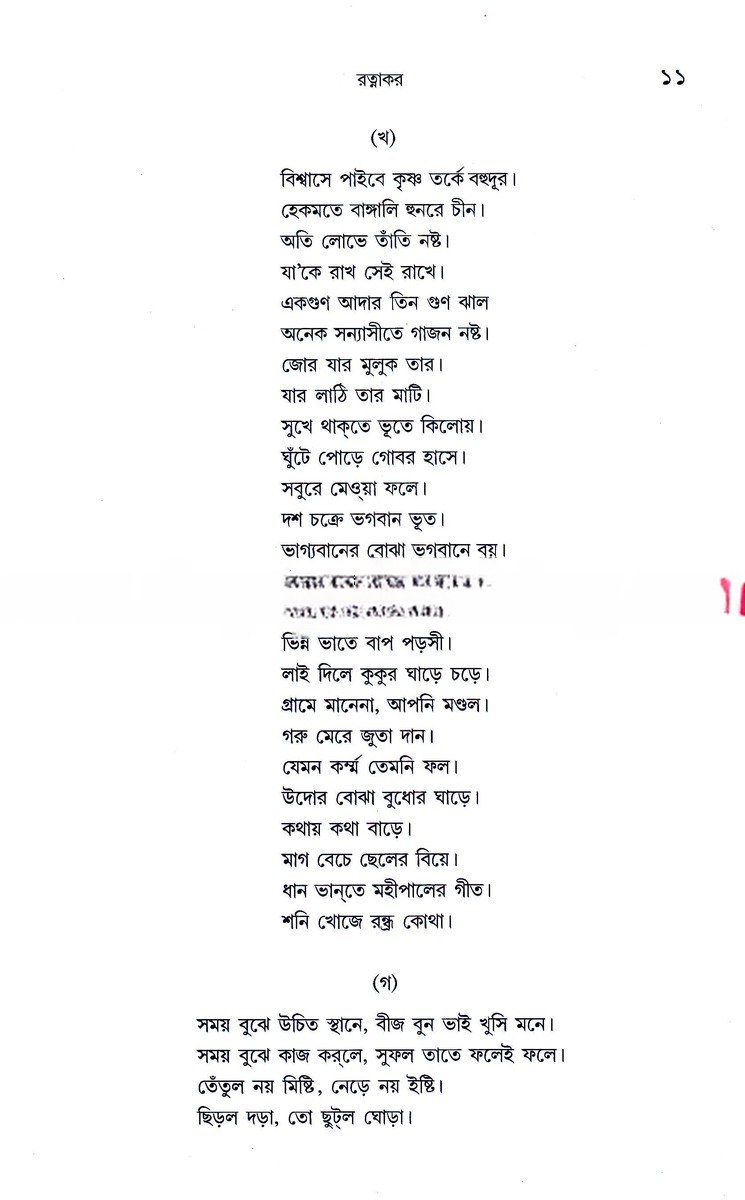 রত্নাকর ১১
(খ)
বিশ্বাসে পাইবে কৃষ্ণ তর্কে বহুদূর।
হেকমতে বাঙ্গালি হুনরে চীন।
অতি লোভে তাঁতি নষ্ট।
যা'কে রাখ সেই রাখে।
একগুণ আদার তিন গুণ ঝাল
অনেক সন্যাসীতে গাজন নষ্ট।
জোর যার মুলুক তার।
যার লাঠি তার মাটি।
সুখে থাক্‌তে ভূতে কিলোয়।
ঘুঁটে পোড়ে গোবর হাসে।
সবুরে মেওয়া ফলে।
দশ চক্রে ভগবান ভূত।
ভাগ্যবানের বোঝা ভগবানে বয়।
ভিন্ন ভাতে বাপ পড়সী।
লাই দিলে কুকুর ঘাড়ে চড়ে।
গ্রামে মানেনা, আপনি মণ্ডল।
গরু মেরে জুতা দান।
যেমন কর্ম্ম তেমনি ফল।
উদোর বোঝা বুধোর ঘাড়ে।
কথায় কথা বাড়ে।
মাগ বেচে ছেলের বিয়ে।
ধান ভান্‌তে মহীপালের গীত।
শনি খোজে রন্ধ্র কোথা।
(গ)
সময় বুঝে উচিত স্থানে, বীজ বুন ভাই খুসি মনে।
সময় বুঝে কাজ কর্‌লে, সুফল তাতে ফলেই ফলে।
তেঁতুল নয় মিষ্টি, নেড়ে নয় ইষ্টি।
ছিড়ল দড়া, তো ছুট্‌ল ঘোড়া।